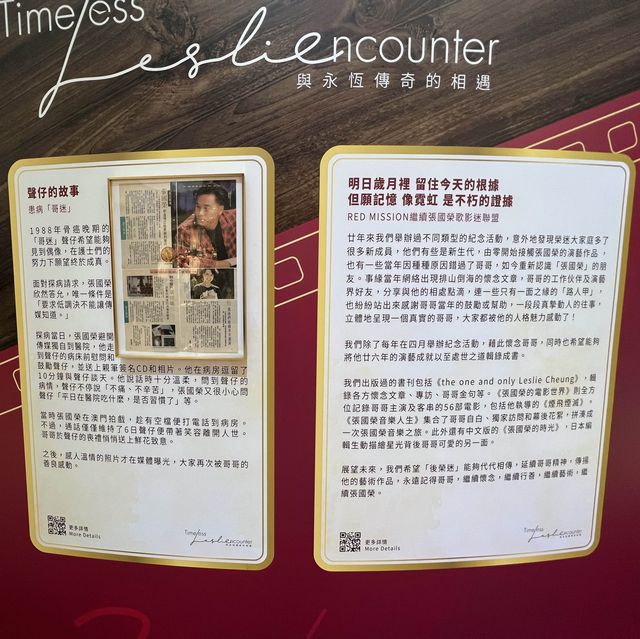 Timeless
Leslie ncounter
與永恆傳奇的相遇
聲仔的故事
患病「哥迷」
1988年骨癌晚期的
「哥迷」聲仔希望能夠
見到偶像，在護士們的
努力下願望終於成真。
面對探病請求，張國榮
欣然答允，唯一條件是
「要求低調決不能讓傳
媒知道。」
探病當日，張國榮避開
傳媒獨自到醫院，他走
到聲仔的病床前慰問和
鼓勵聲仔，並送上親筆簽名CD和相片。他在病房逗留了
10分鐘與聲仔談天。他說話時十分溫柔，問到聲仔的
病情，聲仔不停說「不痛、不辛苦」，張國榮又很小心問
聲仔「平日在醫院吃什麼，是否習慣」等。
當時張國榮在澳門拍戲，趁有空檔便打電話到病房。
不過，通話僅僅維持了6日聲仔便帶著笑容離開人世。
哥哥於聲仔的喪禮悄悄送上鮮花致意。
之後，感人溫情的照片才在媒體曝光，大家再次被哥哥的
善良感動。
更多詳情
More Details
Timeless
Leslie ncounter
明日歲月裡 留住今天的根據
但願記憶 像霓虹 是不朽的證據
RED MISSION繼續張國榮歌影迷聯盟
廿年來我們舉辦過不同類型的紀念活動，意外地發現榮迷大家庭多了
很多新成員，他們有些是新生代，由零開始接觸張國榮的演藝作品，
也有一些當年因種種原因錯過了哥哥，如今重新認識「張國榮」的朋
友。事緣當年網絡出現排山倒海的懷念文章，哥哥的工作伙伴及演藝
界好友，分享與他的相處點滴，連一些只有一面之緣的「路人甲」，
也紛紛站出來感謝哥哥當年的鼓勵或幫助，一段段真摯動人的往事，
立體地呈現一個真實的哥哥，大家都被他的人格魅力感動了！
我們除了每年在四月舉辦紀念活動，藉此懷念哥哥，同時也希望能夠
將他廿六年的演藝成就以至處世之道輯錄成書。
我們出版過的書刊包括《the one and only Leslie Cheung》，輯
錄各方懷念文章、專訪、哥哥金句等。《張國榮的電影世界》則全方
位記錄哥哥主演及客串的56部電影，包括他執導的《煙飛煙滅》。
《張國榮音樂人生》集合了哥哥自白、獨家訪問和幕後花絮，拼湊成
一次張國榮音樂之旅。此外還有中文版的《張國榮的時光》，日本編
輯生動描繪星光背後哥哥可愛的另一面。
展望未來，我們希望「後榮迷」能夠代代相傳，延續哥哥精神，傳揚
他的藝術作品，永遠記得哥哥，繼續懷念，繼續行善，繼續藝術，繼
續張國榮。
更多詳情
More Details
Timeless
Leslie ncounter